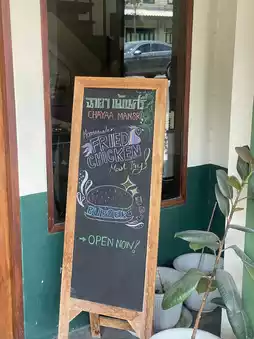 CHAYAA MANOR
Homemade
FRIED
CHICKEN
Must Try!
BURGERS
→ OPEN NOW!